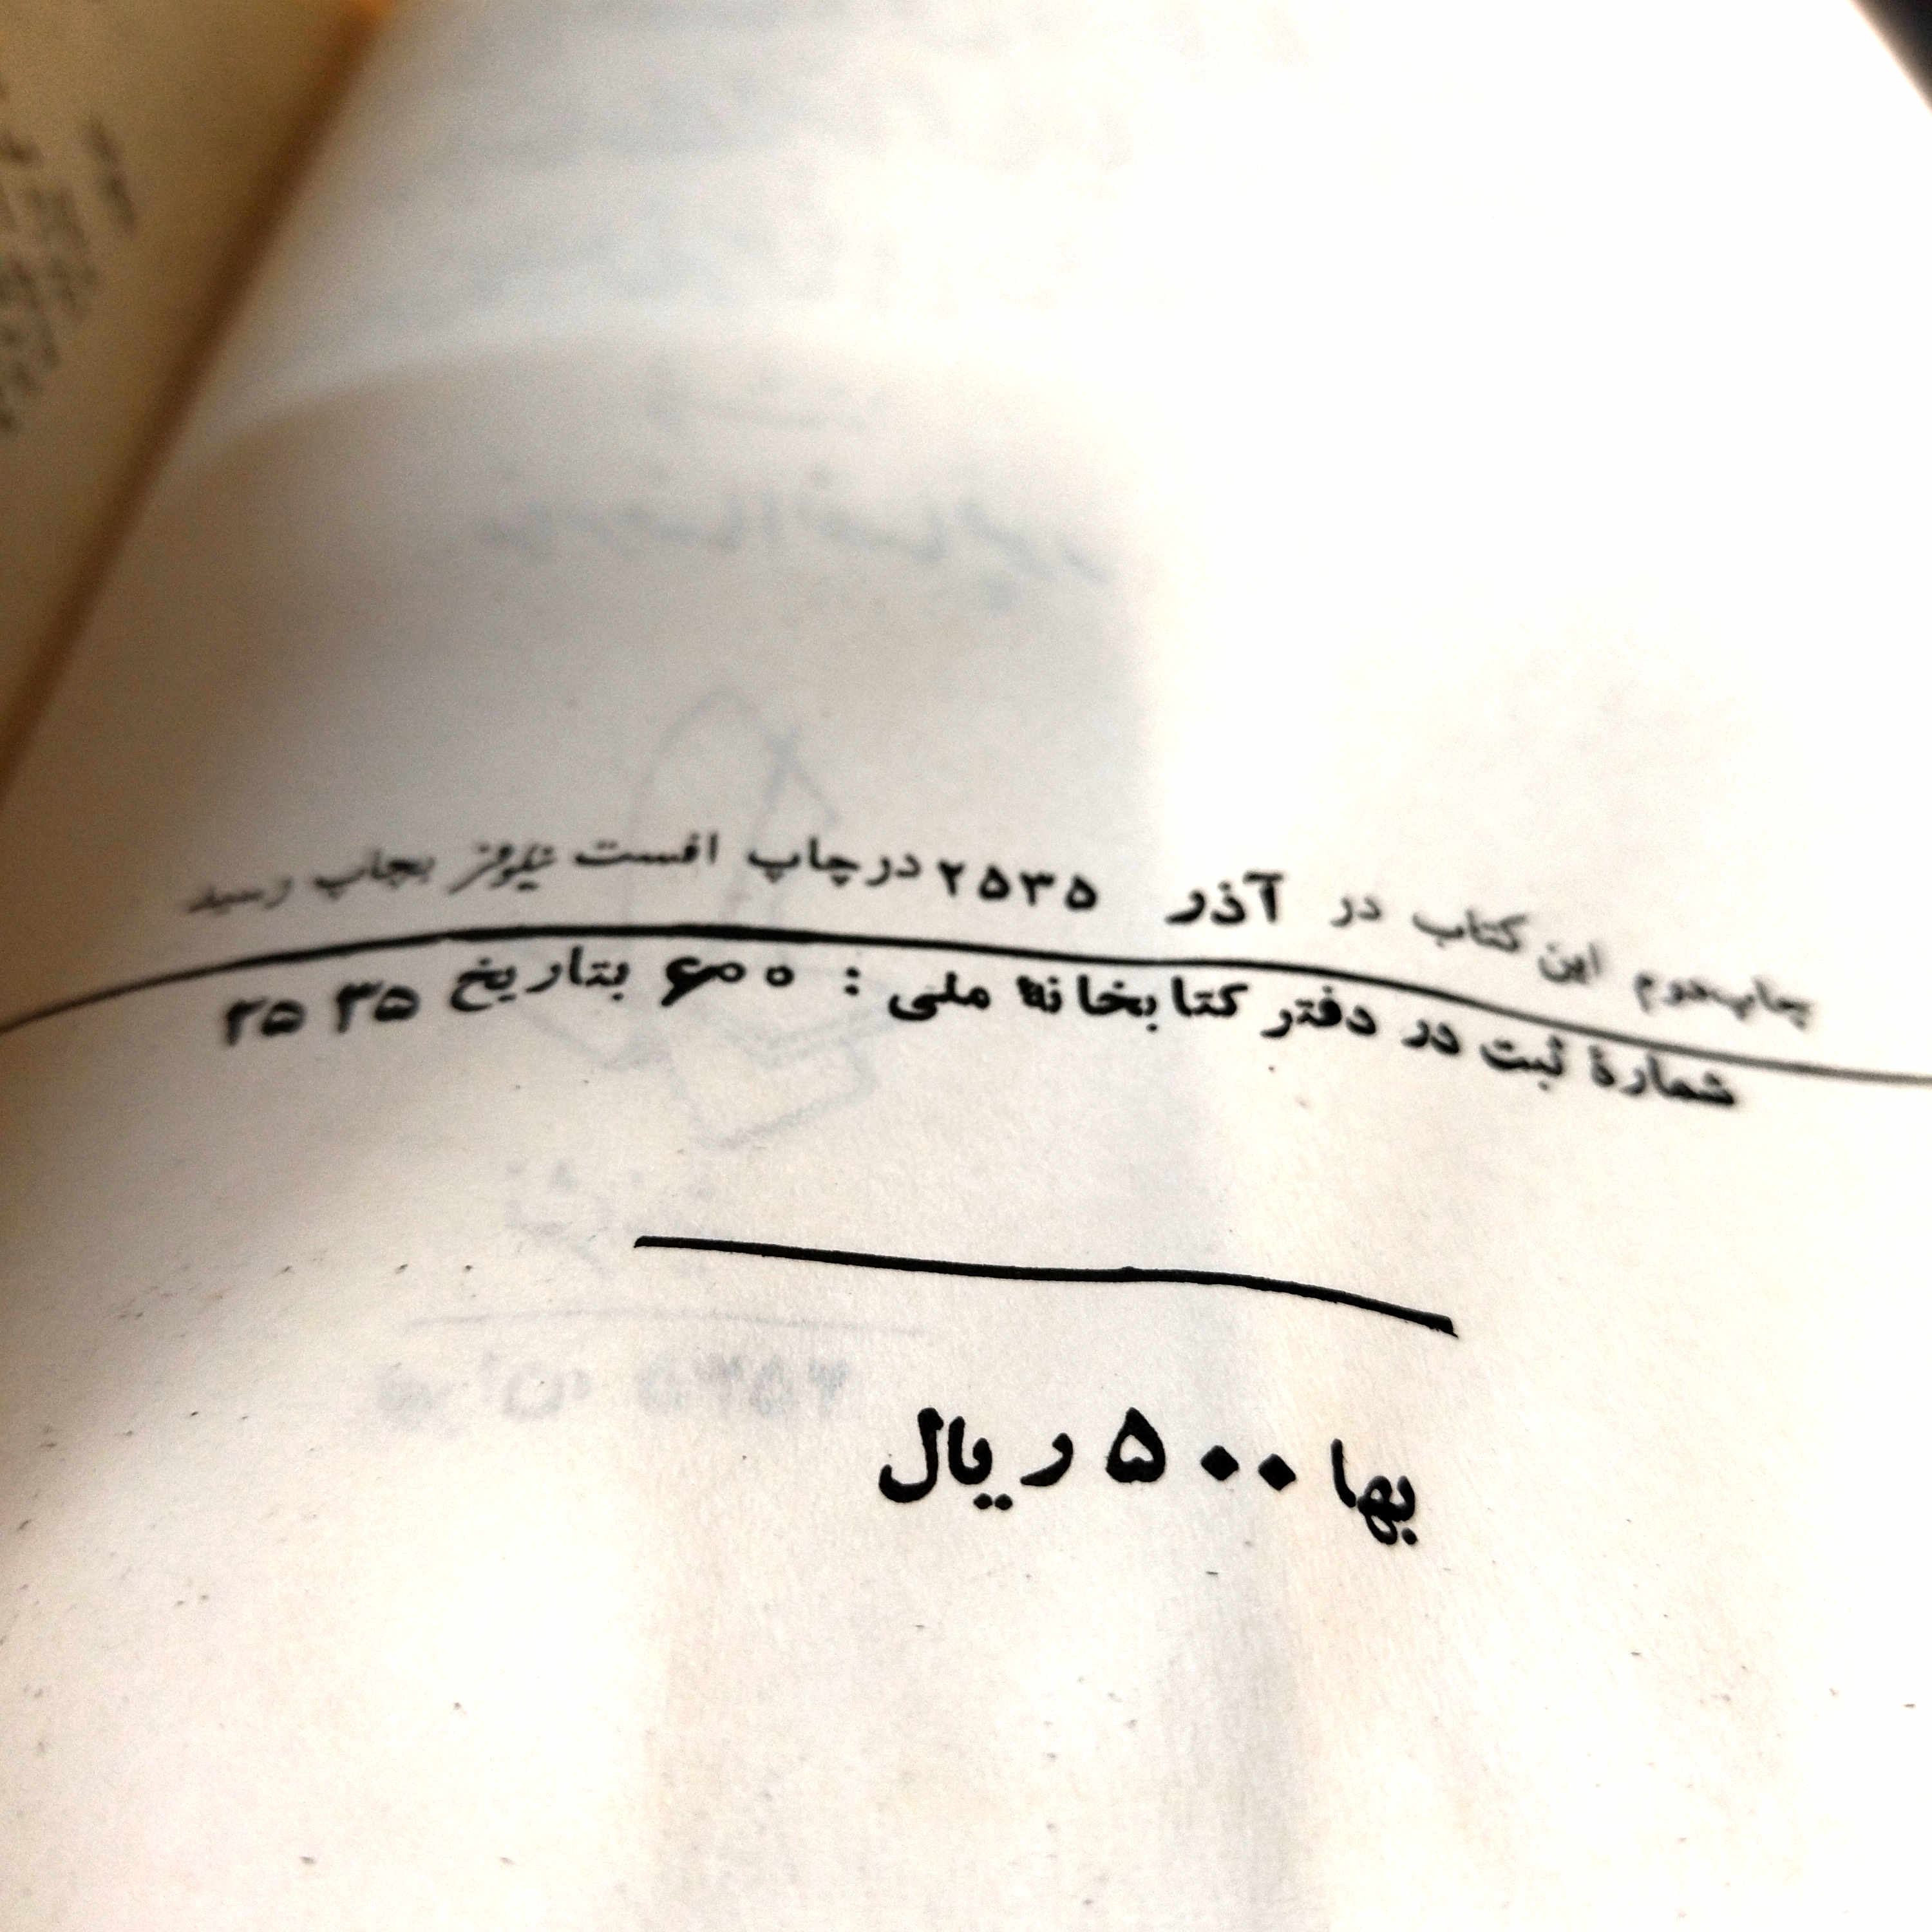 چاپ دوم این کتاب در آذر ۲۵۳۵ در چاپ افست نیلوفر بچاپ رسید
شمارهٔ ثبت در دفتر کتابخانهٔ ملی : ۶۰۰ بتاریخ ۲۵۳۵
بها ۵۰۰ ریال